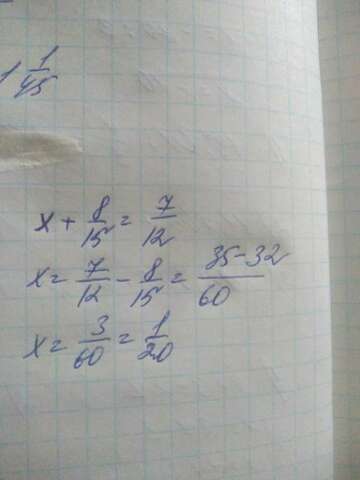 1 1/45
x + 8/15 = 7/12
x = 7/12 - 8/15 = 35-32/60
x = 3/60 = 1/20